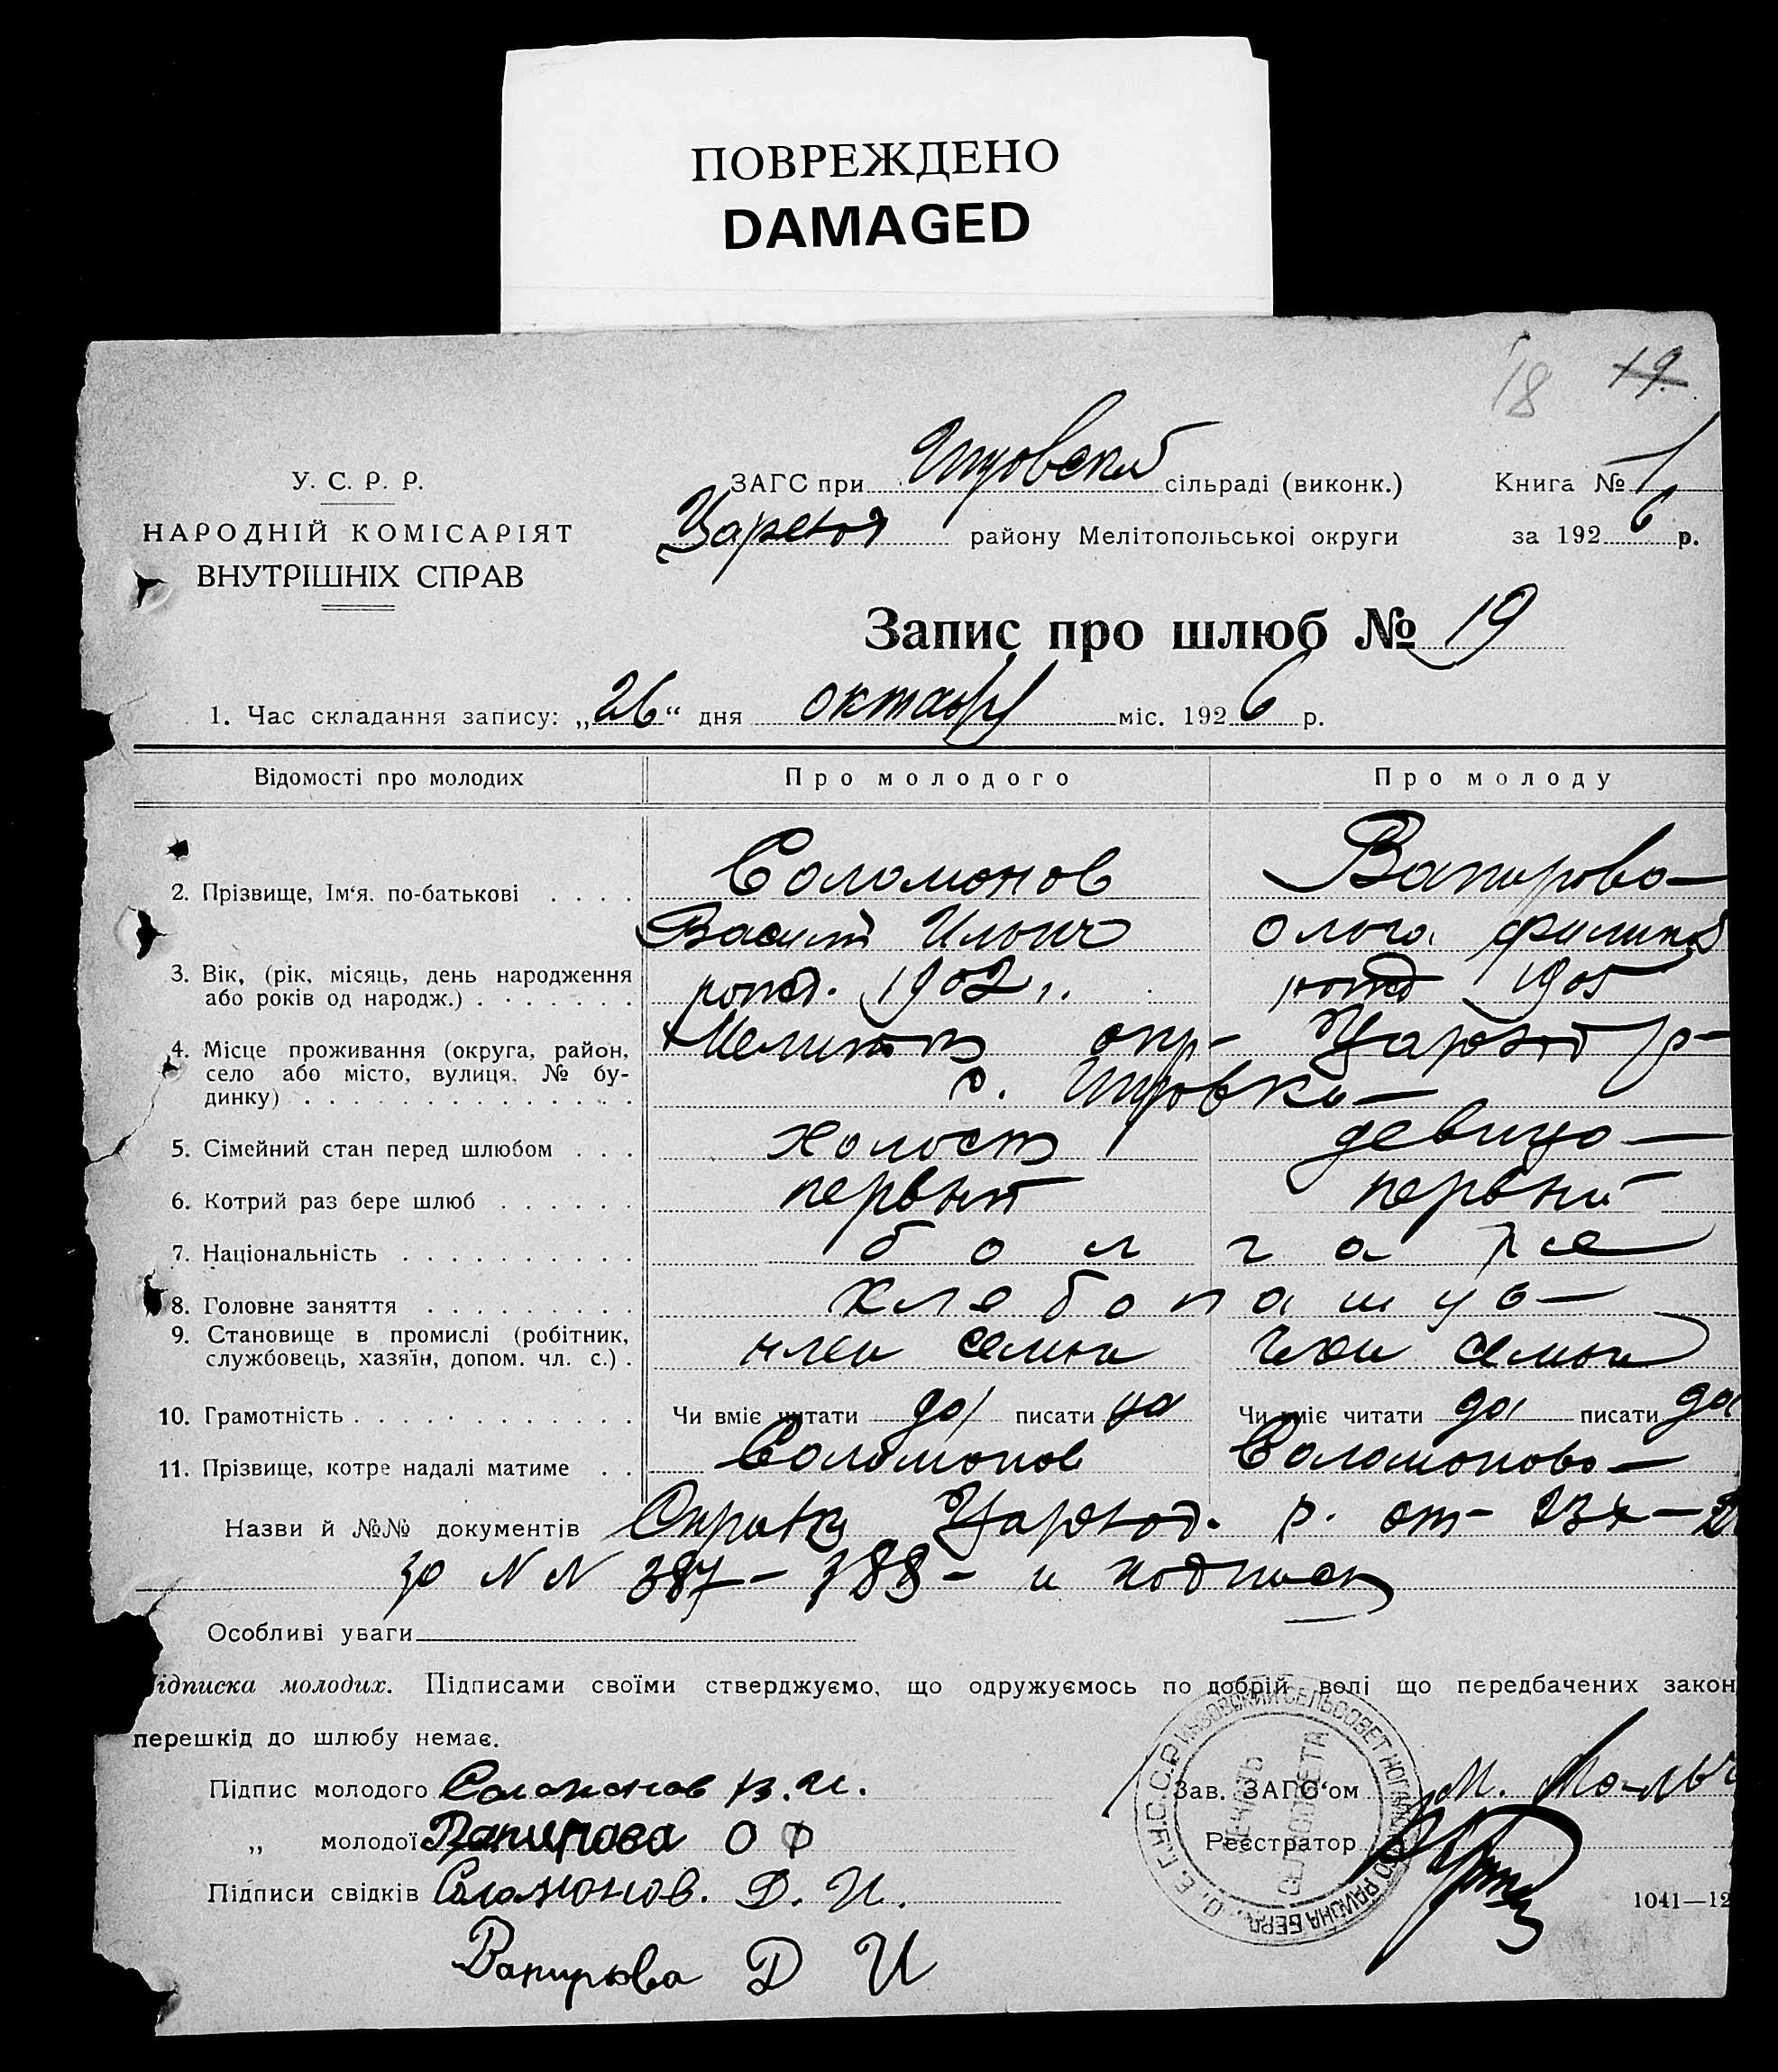 ПОВРЕЖДЕНО
DAMAGED
18 19.
У. С. Р. Р.
НАРОДНІЙ КОМІСАРІЯТ
ВНУТРІШНІХ СПРАВ
ЗАГС при сільраді (виконк.) Книга № 1
району Мелітопольської округи за 1926 р.
Запис про шлюб № 19
1. Час складання запису: „26“ дня октабря міс. 1926 р.
Відомості про молодих Про молодого Про молоду
2. Прізвище, Ім‘я. по-батькові . . . . Соломонов Вапирова
Василий Ильич Ольга Филип
3. Вік, (рік, місяць, день народження
або років од народж.) . . . . . . . рожд. 1902 г. рожд 1905
4. Місце проживання (округа, район, Мелитоп окр-
село або місто, вулиця, № бу-
динку) . . . . . . . . . . . . . . с.
5. Сімейний стан перед шлюбом . . . холост девица
6. Котрий раз бере шлюб . . . . . . первый первый
7. Національність . . . . . . . . . . болгаре
8. Головне заняття . . . . . . . . .
9. Становище в промислі (робітник,
службовець, хазяїн, допом. чл. с.) . член семьи член семьи
10. Грамотність . . . . . . . . . . . . Чи вміє читати да писати да Чи вміє читати да писати да
11. Прізвище, котре надалі матиме . . Соломонов Соломонова
Назви й №№ документів р. от
за N N 387 - 388 - и подписк
Особливі уваги
ідписка молодих. Підписами своїми стверджуємо, що одружуємось по добрій волі що передбачених закон
перешкід до шлюбу немає.
Підпис молодого Соломонов В. И.
„ молодої Вапирова О Ф
Підписи свідків Соломонов. Д. И.
Вапирова Д И
Зав. ЗАГС‘ом М.
Реєстратор
1041—12